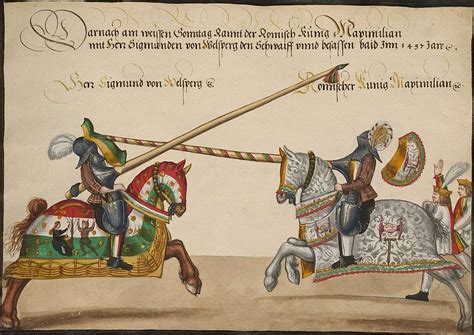 Darnach am weissen Sonntag Rannt der Römisch Kunig Maximilian
mit Herr Sigmunden von Welsperg den Schwaiff vnnd besassen baid Im 1497 Jare
Herr Sigmund von Welsperg
Römischer Kunig Maximilian